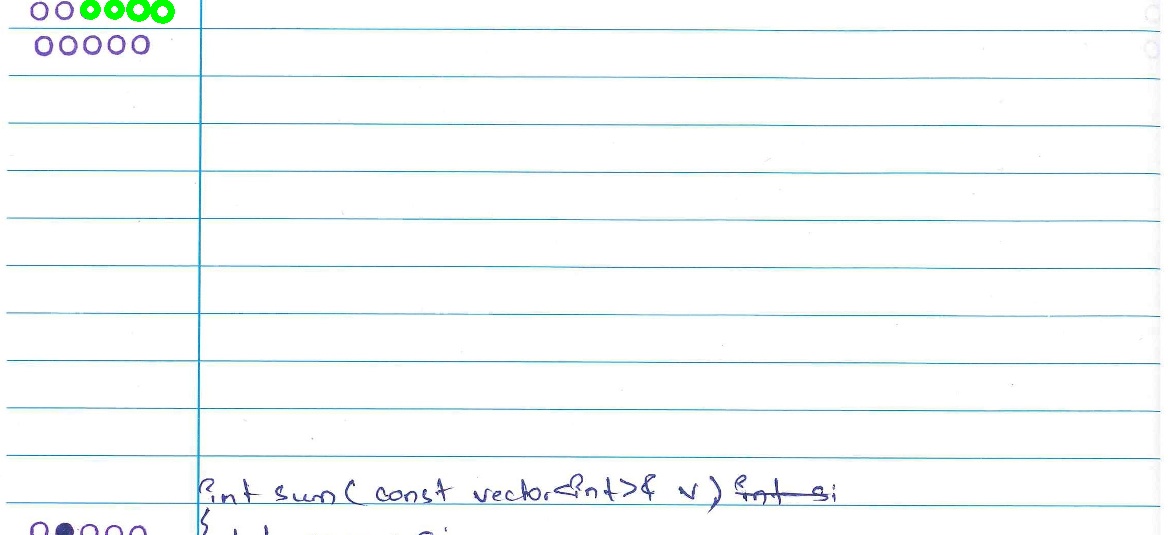 int sum( const vector<int>& v) int si
{